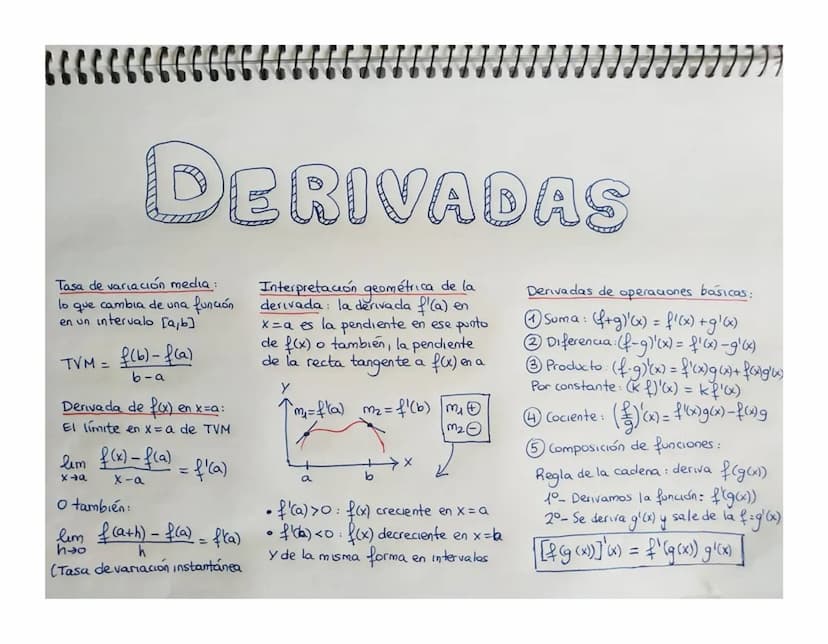 DERIVADAS
Tasa de variación media:
lo que cambia de una función
en un intervalo [a,b]
TVM = f(b) - f(a) / b - a
Derivada de f(x) en x=a:
El límite en x=a de TVM
lim x→a f(x) - f(a) / x - a = f'(a)
O también:
lim h→0 f(a+h) - f(a) / h = f'(a)
(Tasa de variación instantánea
Interpretación geométrica de la
derivada: la derivada f'(a) en
x=a es la pendiente en ese punto
de f(x) o también, la pendiente
de la recta tangente a f(x) en a
y
m₁=f'(a) m₂=f'(b)
m₁ ⊕
m₂ ⊖
a b x
• f'(a)>0: f(x) creciente en x=a
• f'(b)<0: f(x) decreciente en x=b
y de la misma forma en intervalos
Derivadas de operaciones básicas:
① Suma: (f+g)'(x) = f'(x)+g'(x)
② Diferencia: (f-g)'(x) = f'(x)-g'(x)
③ Producto: (f·g)'(x) = f'(x)g(x)+f(x)g'(x)
Por constante: (k f)'(x) = k f'(x)
④ Cociente: (f/g)'(x) = f'(x)g(x)-f(x)g
⑤ Composición de funciones:
Regla de la cadena: deriva f(g(x))
1º- Derivamos la función: f'(g(x))
2º- Se deriva g'(x) y sale de la f=g'(x)
[f(g(x))]'(x) = f'(g(x)) g'(x)